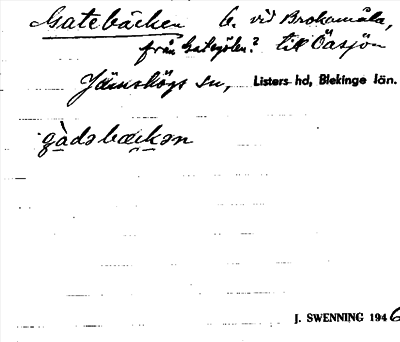 Gatebäcken b. vid Brokamåla,
från Gatesjölen? till Öasjön
Jämshögs sn, Listers hd, Blekinge län.
gàdəbæk̬ən
J. SWENNING 1946